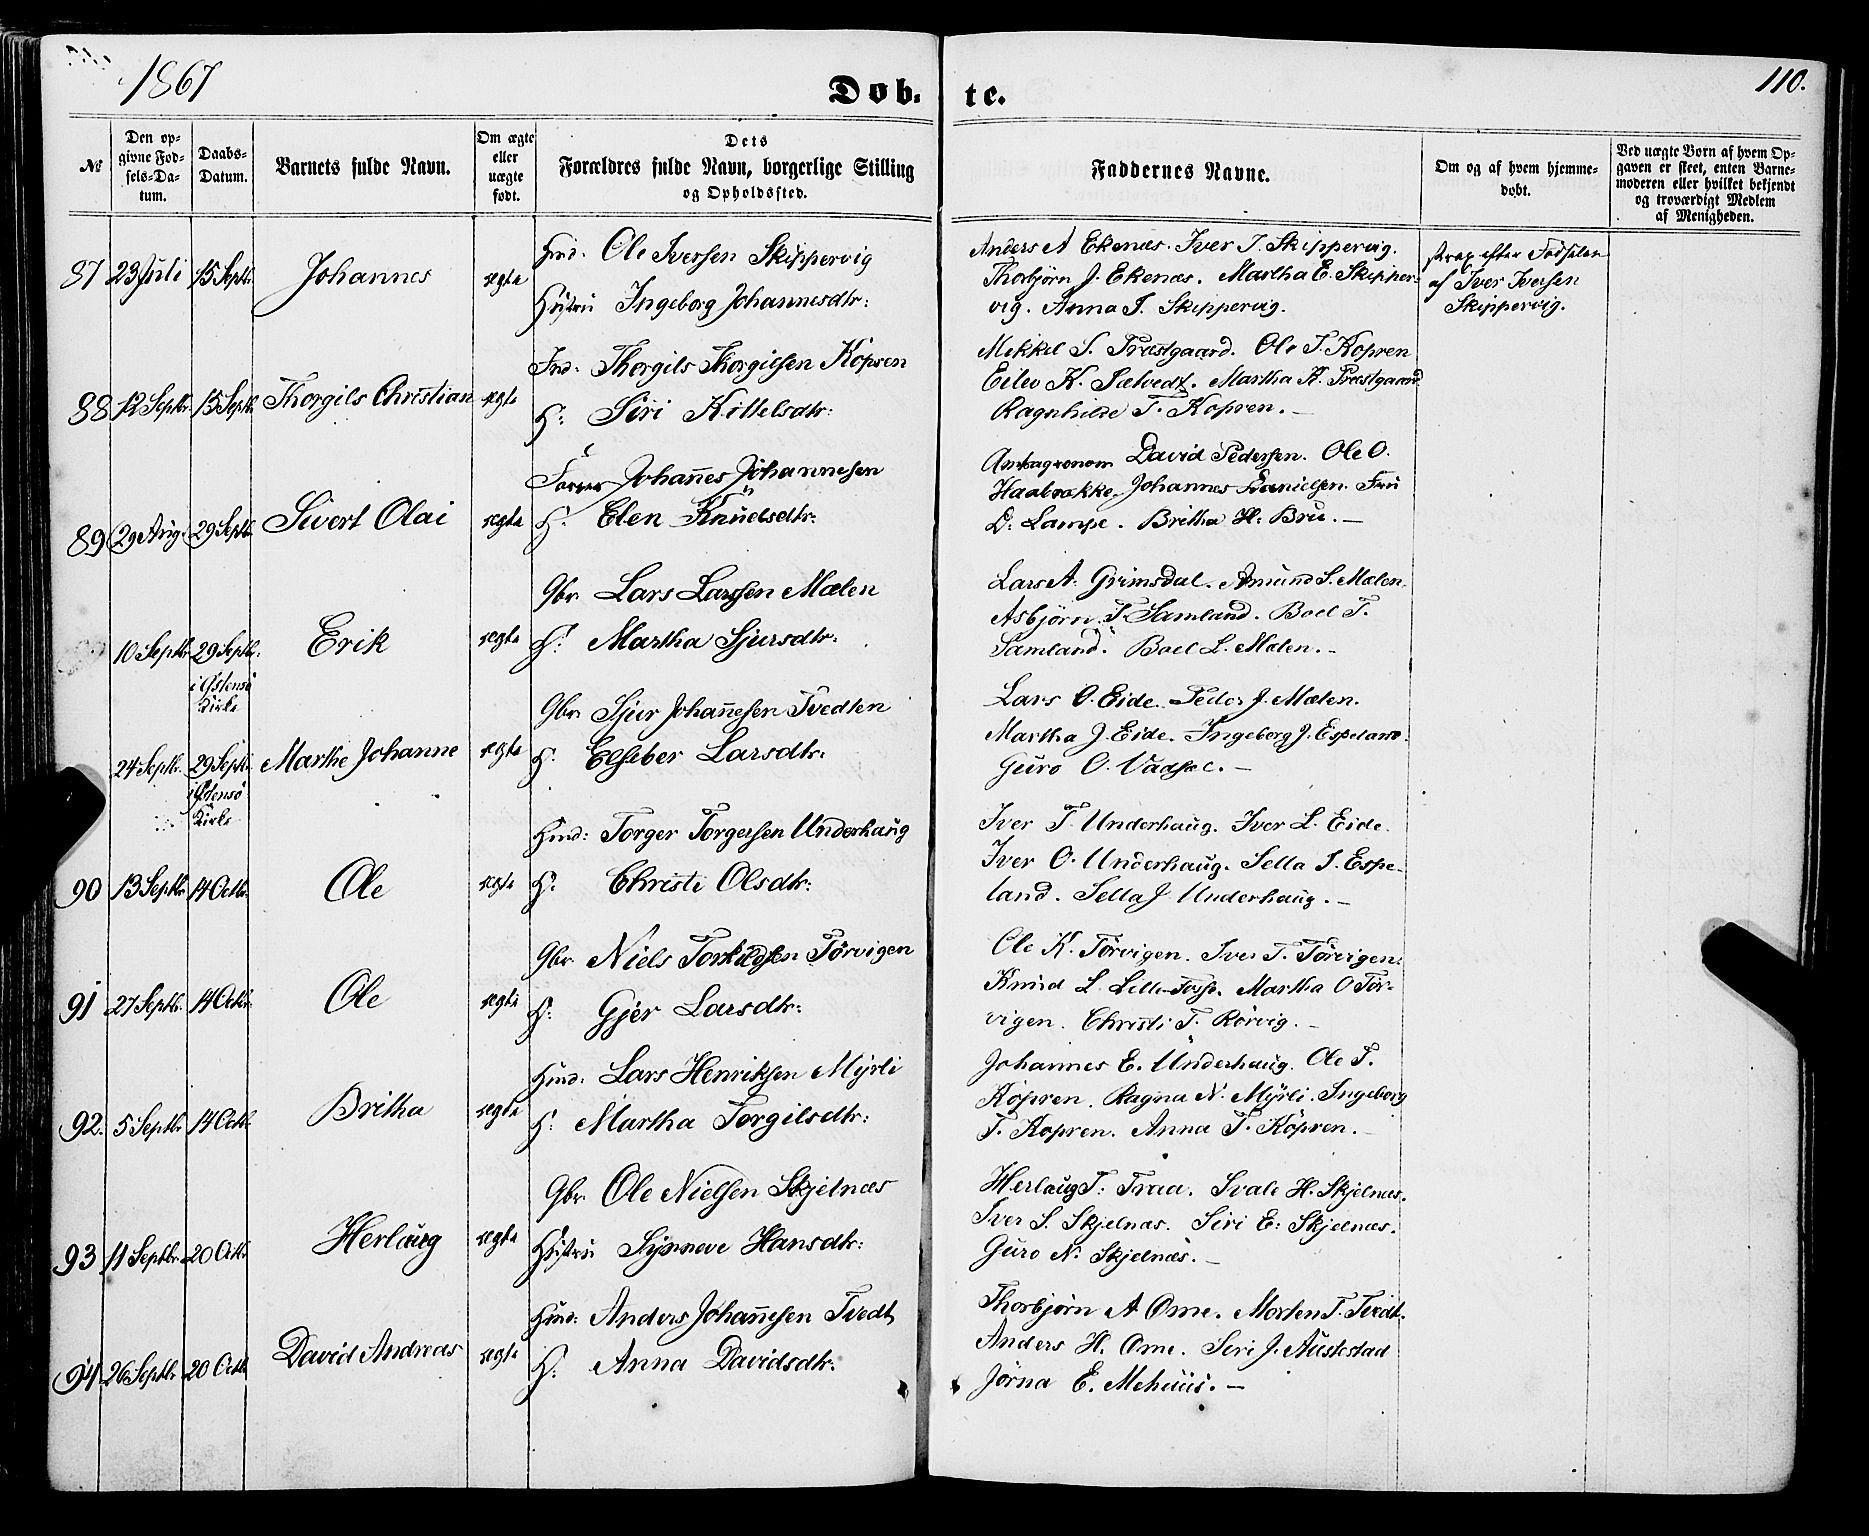 1867
Døb-
te.
110.
№
Den op-
givne Fød-
sels-Da-
tum.
Daabs-
Datum.
Barnets fulde Navn.
Om ægte
eller
uægte
født.
Dets
Forældres fulde Navn, borgerlige Stilling
og Opholdssted.
Faddernes Navne.
Om og af hvem hjemme-
døbt.
Ved uægte Børn af hvem Op-
gaven er skeet, enten Barne-
moderen eller hvilket bekjendt
og troværdigt Medlem
af Menigheden.
87 23 Juli 15 Septbr. Johannes ægte
Huusmd. Ole Iversen Skippervig
Hustru Ingeborg Johannesdtr:
Anders A Ekenæs. Iver I. Skippervig.
Thorbjørn J. Ekenæs. Martha E. Skipper-
vig. Anna I. Skippervig.
strax efter Fødselen
af Iver Iversen
Skippervig.
88 12 Septbr. 15 Septbr. Thorgils Christian ægte
Ind: Thorgils Thorgilsen Kopren
H: Siri Kittelsdtr:
Mikkel S. Præstgaard. Ole T. Kopren
Eilev K. Sælvedt. Martha K. Præstgaard
Ragnhilde T. Kopren. –
89 29 Aug. 29 Septbr. Sivert Olai ægte
Johannes Johannesen
H. Elen Knudsdtr:
Amtagronom David Pedersen. Ole O.
Haabrække. Johannes Danielsen. Fru
D. Lampe. Britha H. Bru. –
10 Septbr. 29 Septbr.
i Østensø
Kirke
Erik ægte
Gbr. Lars Larssen Mælen
H: Martha Sjursdtr:
Lars A. Grimsdal. Amund S. Mælen.
Asbjørn T. Samland. Boel T.
Samland. Boel L. Mælen. –
24 Septbr. 29 Septbr.
i Østensø
Kirke
Marthe Johanne ægte
Gbr. Sjur Johannesen Tvedten
H. Elseber Larsdtr:
Lars O. Eide. Peder J. Mælen.
Martha J. Eide. Ingeborg J. Espeland.
Guro O. Vadsel. –
90 13 Septbr. 14 Octbr. Ole ægte
Huusmd: Torger Torgersen Underhaug
H: Christi Olsdtr:
Iver T. Underhaug. Iver L. Eide.
Iver O. Underhaug. Sella I. Espe-
land. Sella J Underhaug. –
91 27 Septbr. 14 Octbr. Ole ægte
Gbr. Niels Torkildsen Tørvigen
H: Gjør Larsdtr:
Ole K. Tørvigen. Iver T. Tørvigen.
Knud L. Lille-Torp. Martha O Tør-
vigen. Christi T. Rørvig. –
92. 5 Septbr. 14 Octbr. Britha ægte
Huusmd: Lars Henriksen Myrli
H: Martha Torgilsdtr:
Johannes E. Underhaug. Ole T.
Kopren. Ragna N. Myrli. Ingeborg
T. Kopren. Anna T. Kopren. –
93 11 Septbr. 20 Octbr. Herlaug ægte
Gbr. Ole Nielsen Skjelnæs
Hustru Synneve Hansdtr:
Herlaug T: Traa. Svale H. Skjelnæs.
Iver S. Skjelnæs. Siri E: Skjelnæs.
Guro N. Skjelnæs. –
94 26 Septbr. 20 Octbr. David Andreas ægte
Huusmd: Anders Johannesen Tvedt
H: Anna Davidsdtr:
Thorbjørn A Ome. Morten T. Tvedt.
Anders H. Ome. Siri J. Austestad
Jørna E. Mehuus. –